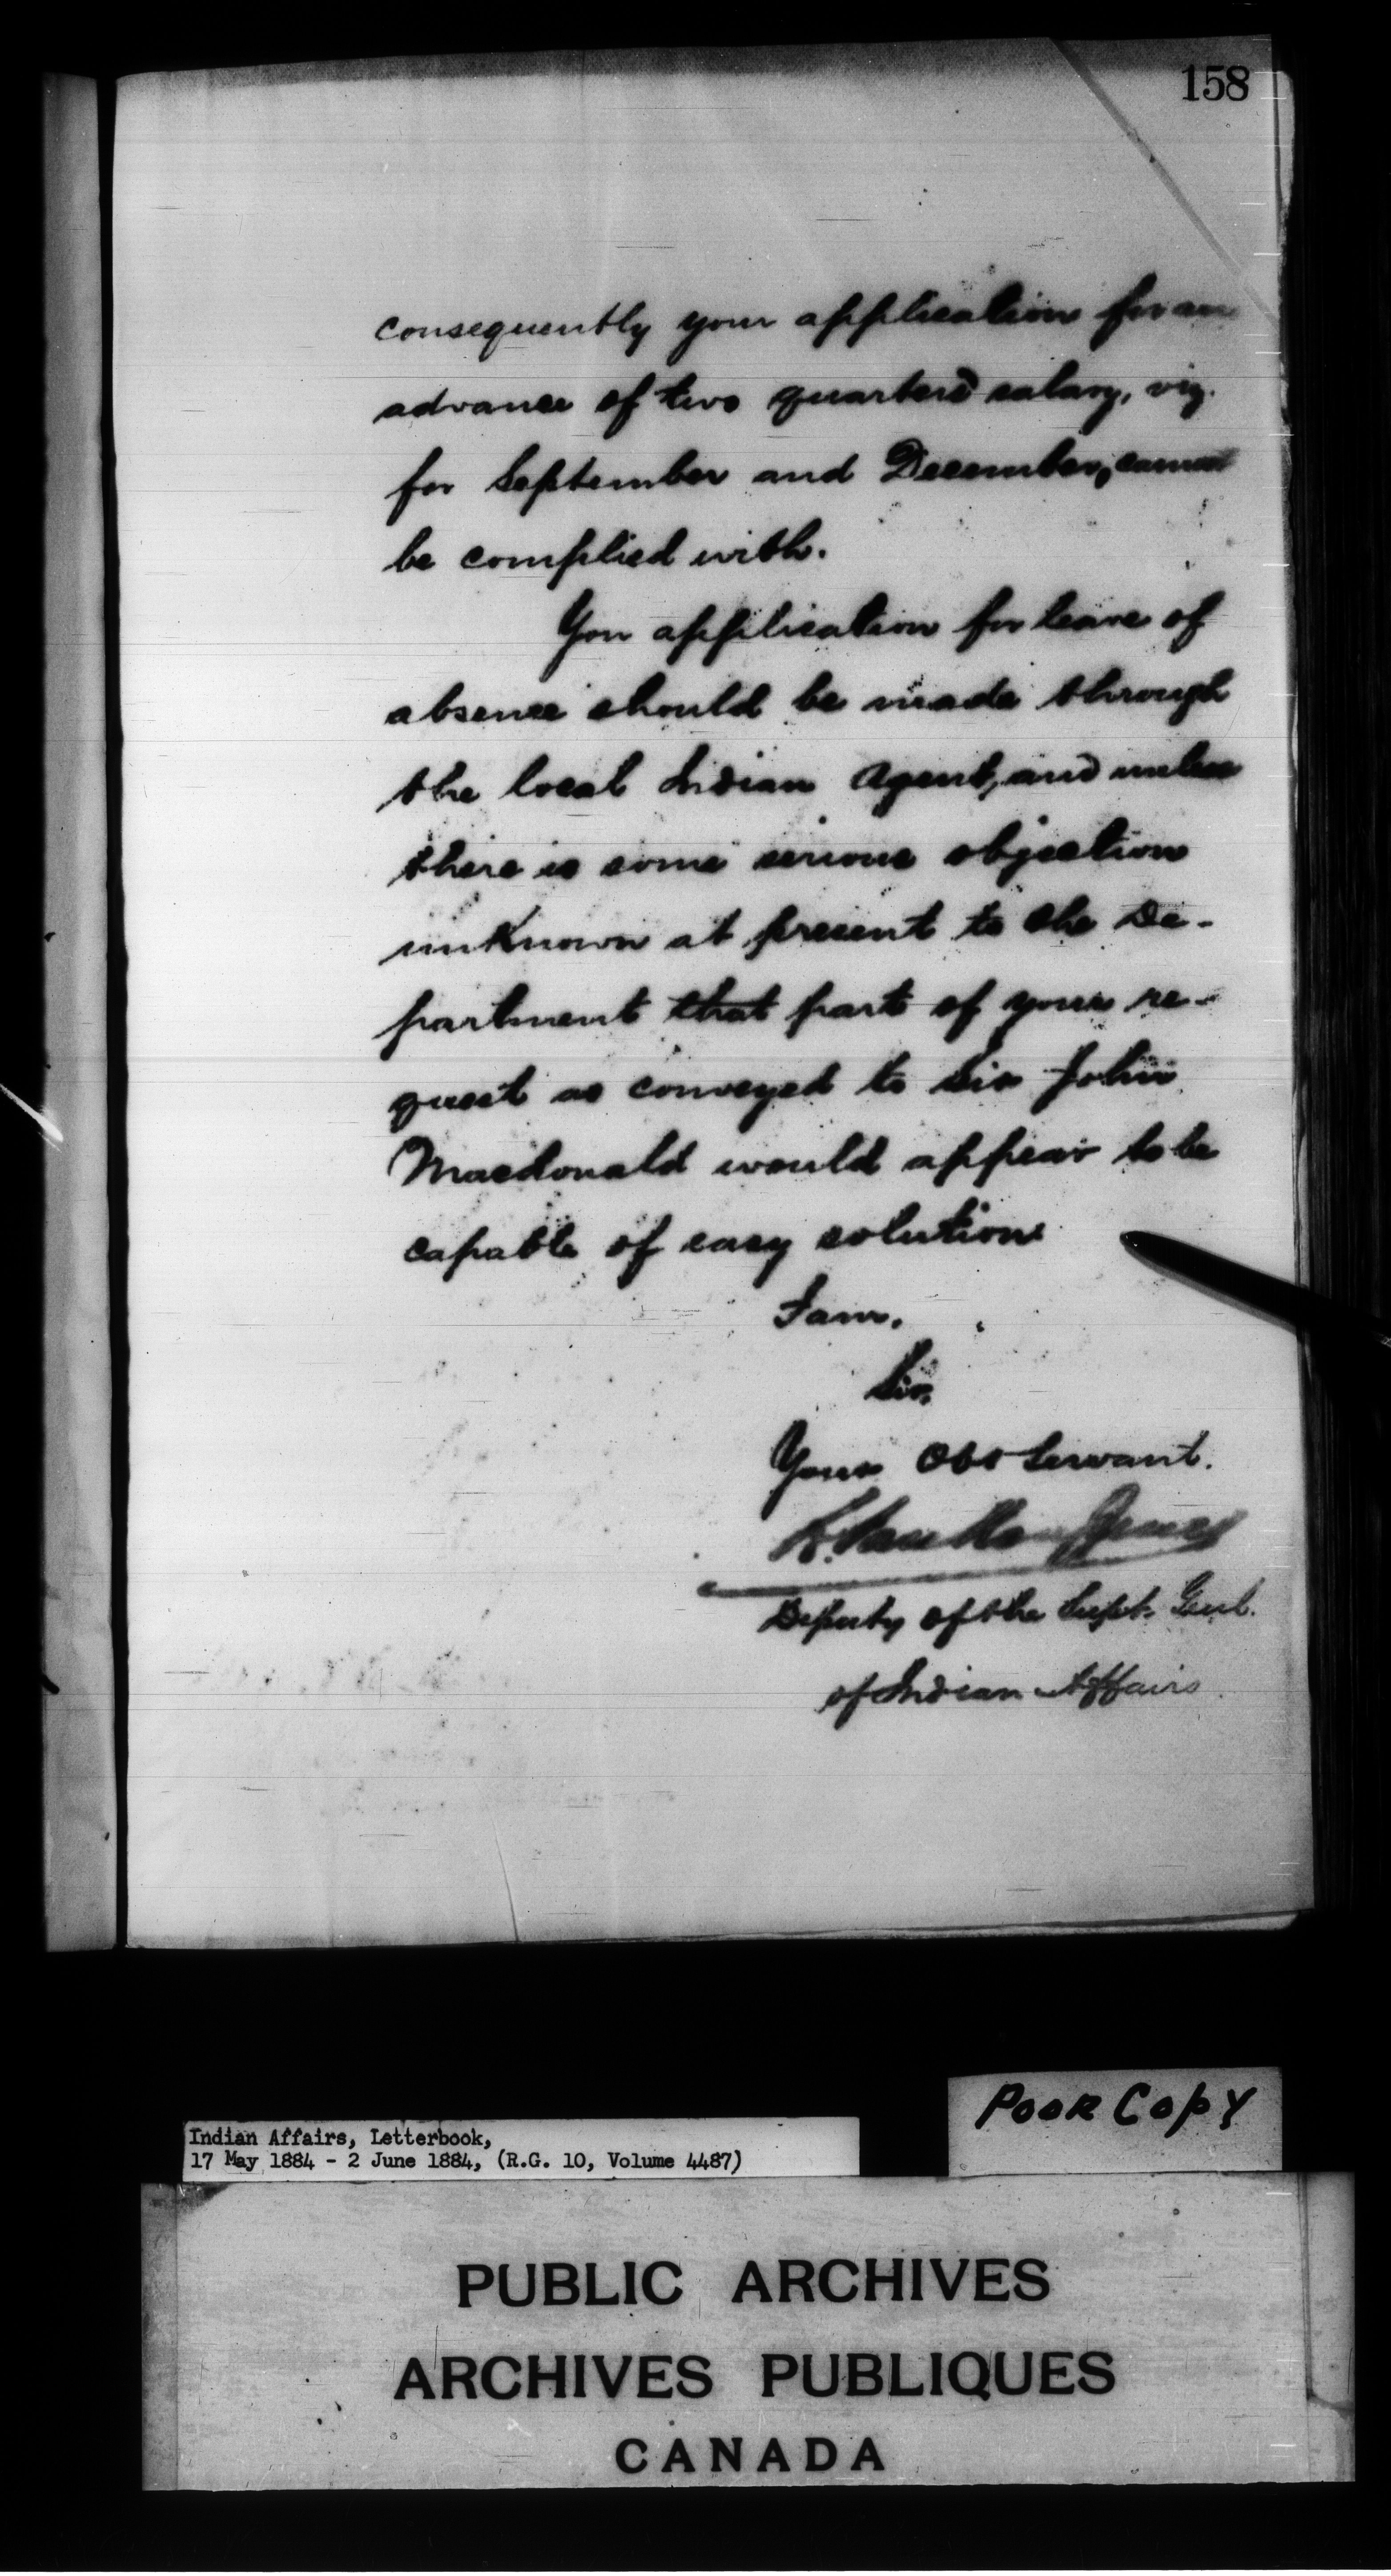 158
consequently your application for an
advance of two quarters salary, viz.
for September and December, cannot
be complied with.
Your application for leave of
absence should be made through
the local Indian Agent, and unless
there is some serious objection
unknown at present to the De-
partment that part of your re-
quest as conveyed to Sir John
Macdonald would appear to be
capable of easy solution
I am,
Sir,
Your Obt Servant.
L. VanKoughnet
Deputy of the Supt. Genl.
of Indian Affairs
Poor Copy
Indian Affairs, Letterbook,
17 May 1884 - 2 June 1884, (R.G. 10, Volume 4487)
PUBLIC ARCHIVES
ARCHIVES PUBLIQUES
CANADA